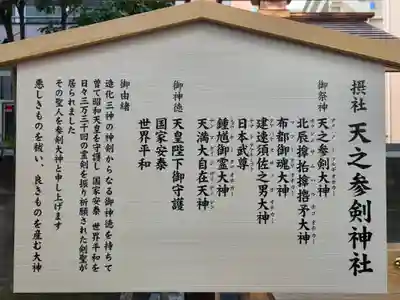 摂社 天之参剣神社
御祭神
天之参剣大神
北辰揥拓擰捂矛大神
布都御魂大神
建速須佐之男大神
日本武尊
鐘馗御霊大神
天満大自在天神
御神徳
天皇陛下御守護
国家安泰
世界平和
御由緒
造化三神の神剣からなる御神徳を持ちて
曽て昭和天皇を守護し国家安泰 世界平和を
日々三万三千回の霊剣を振り祈願された剣聖が
居られました
その聖人を参剣大神と申し上げます
悪しきものを祓い、良きものを産む大神